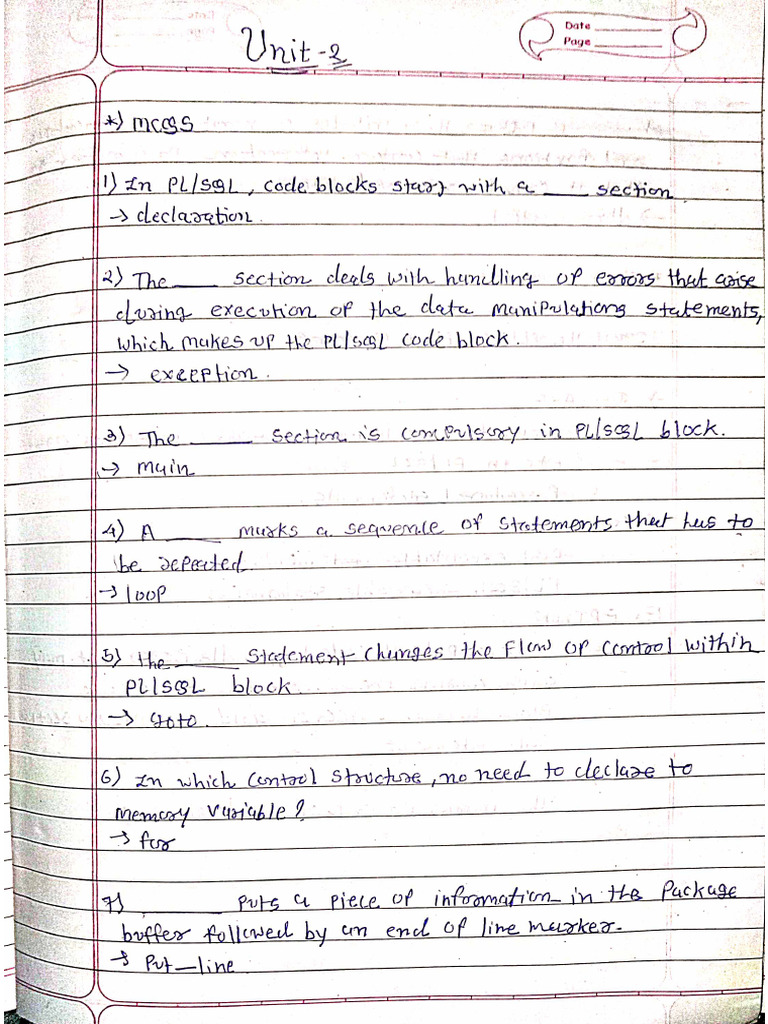 Date
Page
Unit-2
*) MCQS
1) In PL/SQL, code blocks start with a ___ section
→ declaration.
2) The ____ section deals with handling of errors that arise
during execution of the data manipulations statements,
which makes up the PL/SQL code block.
→ exception.
3) The _____ section is compulsory in PL/SQL block.
→ main
4) A _____ marks a sequence of statements that has to
be repeated
→ loop
5) the _____ statement changes the flow of control within
PL/SQL block
→ goto.
6) In which control structure, no need to declare to
memory variable?
→ for
7) ________ puts a piece of information in the package
buffer followed by an end of line marker.
→ Put_line